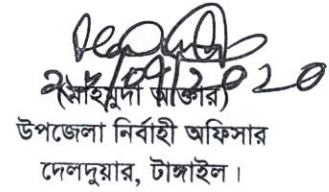 ২১/০৭/২০২০
(মাহমুদা আক্তার)
উপজেলা নির্বাহী অফিসার
দেলদুয়ার, টাঙ্গাইল।